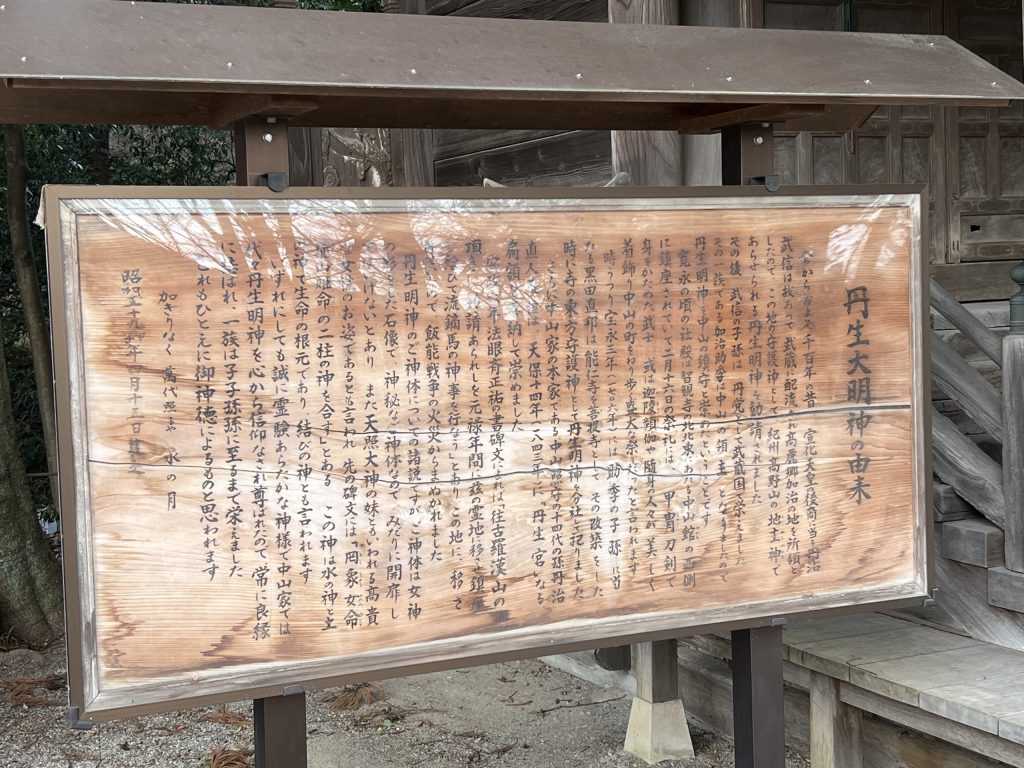 丹生大明神の由来
今からおよそ千百年の昔 宣化天皇後裔に当る丹治
武信は故あって武蔵に配流され高麗郷加治の地を所領と
したので、この地の守護神として、紀州高野山の地主神で
あらせられる丹生明神を勧請されました
その後、武信の子孫は、丹党として武蔵国で栄えました
その一族である加治助季は中山の領主となりましたので
丹生明神を中山の鎮守と崇めたということです
寛永の頃の社殿は智観寺の北東にあり、中山館の西側
に鎮座されていて二月十五日の祭礼は、甲冑刀剣で
身をかためた武士、或は迦陵頻伽や随身の人々が美しく
着飾り中山の町をねり歩く盛大な祭だったと言われます
時うつり宝永三年(一七〇六年)には助季の子孫に当
たる黒田直邦は能仁寺を菩提寺として、その改築をした
時に寺の東方守護神として丹生明神を分社して祀りました
中山家の本家である中山備前守の十四代の孫丹治
直人 は 天保十四年(一八四三年)に「丹生宮」なる
扁額を 納して崇めました
年法眼育正祐の書碑文によれば「往古羅漢山の
頂 消あられしを元禄年間 慈の霊地に移し鎮座
流鏑馬の神事を行ること」とあり、この地に、移さ
飯能戦争の火災からまぬがれました
丹生明神のご神体については諸説ですが、ご神体は女神
の 石像で、神秘なご神体なので、みだりに開扉し
てはいけないとあり、また天照大神の妹ともいわれる高貴
な女性のお姿であるとも言われ、先の碑文には、罔象女命
埴山姫命の二柱の神を合すとある この神は水の神土
の神で生命の根元であり、結の神とも言われます
いずれにしても誠に霊験あらたかな神様で中山家では
代々丹生明神を心から信仰なされ尊ばれたので常に良縁
に結ばれ、一族は子子孫孫に至るまで栄えました
これもひとえに御神徳によるものと思われます
かぎりなく 萬代照 水の月
昭和五十九年四月十五日 建立